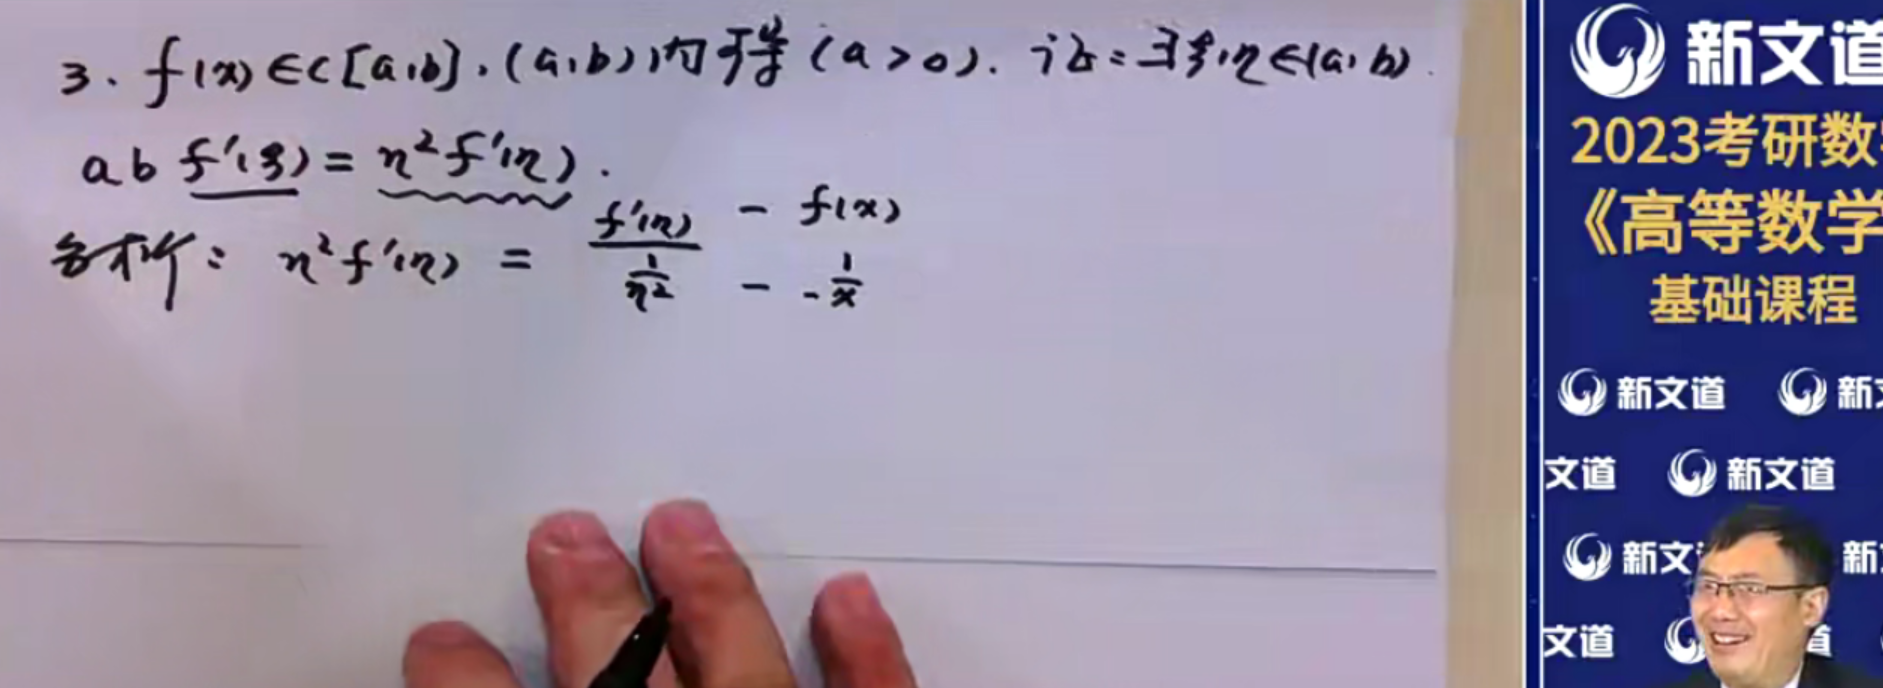 3. f(x)∈C[a,b],(a,b)内可导(a>0).证:∃ξ,η∈(a,b).
ab f'(ξ)=η²f'(η).
分析: η²f'(η) = f'(η)/(1/η²) — f(x)
— -1/x
新文道
2023考研数
《高等数学
基础课程
新文道 新
文道 新文道
新文 新
文道 道